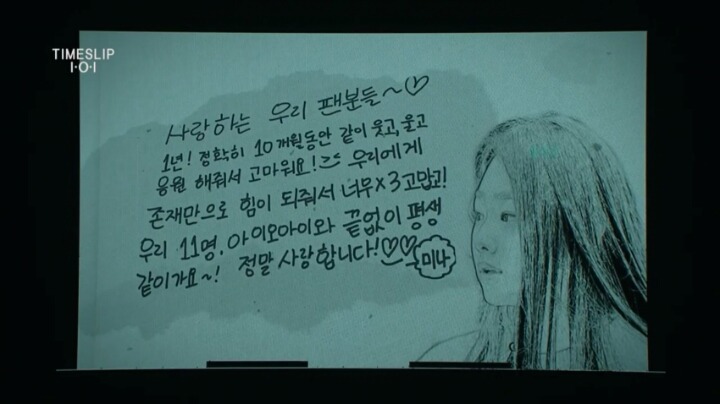 TIMESLIP
I·O·I
사랑하는 우리 팬분들~♡
1년! 정확히 10개월동안 같이 웃고,울고
응원 해줘서 고마워요! 우리에게
존재만으로 힘이 되줘서 너무x3 고맙고!
우리 11명, 아이오아이와 끝없이 평생
같이가요~! 정말 사랑합니다!♡♡
미나